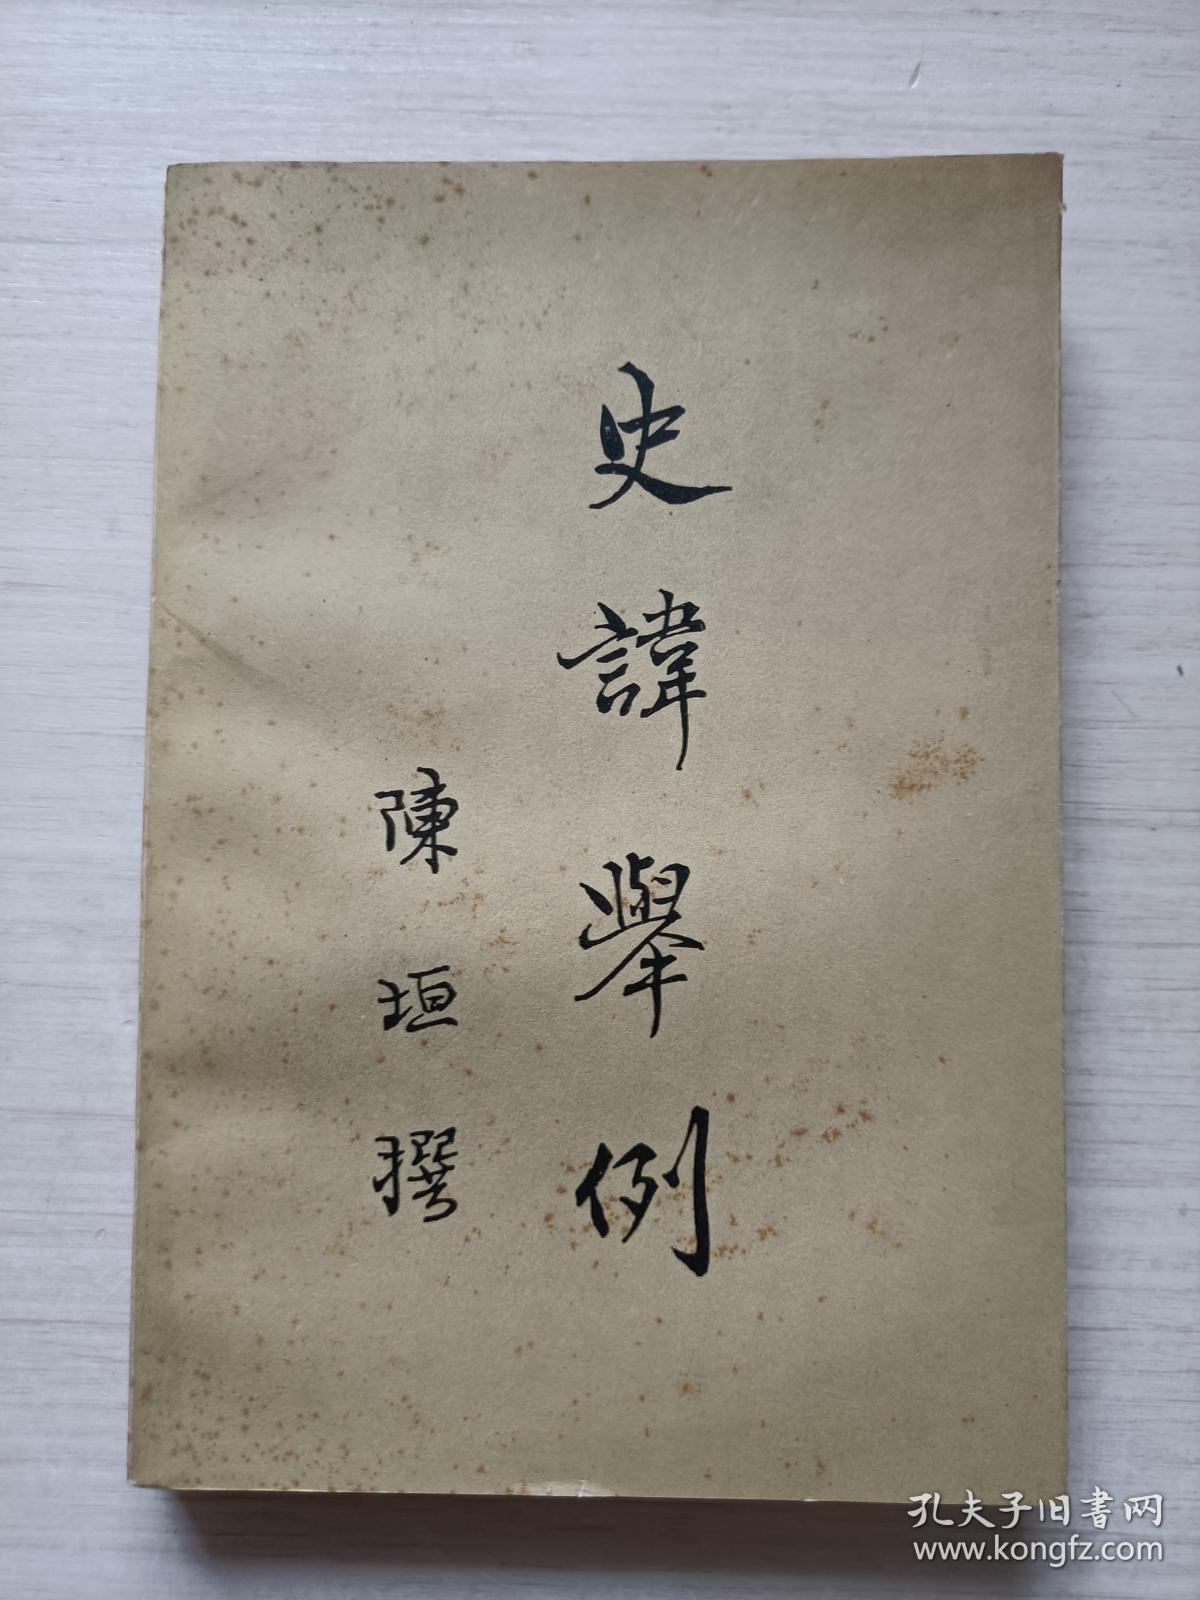 史諱舉例
陳垣撰
孔夫子旧書网
www.kongfz.com